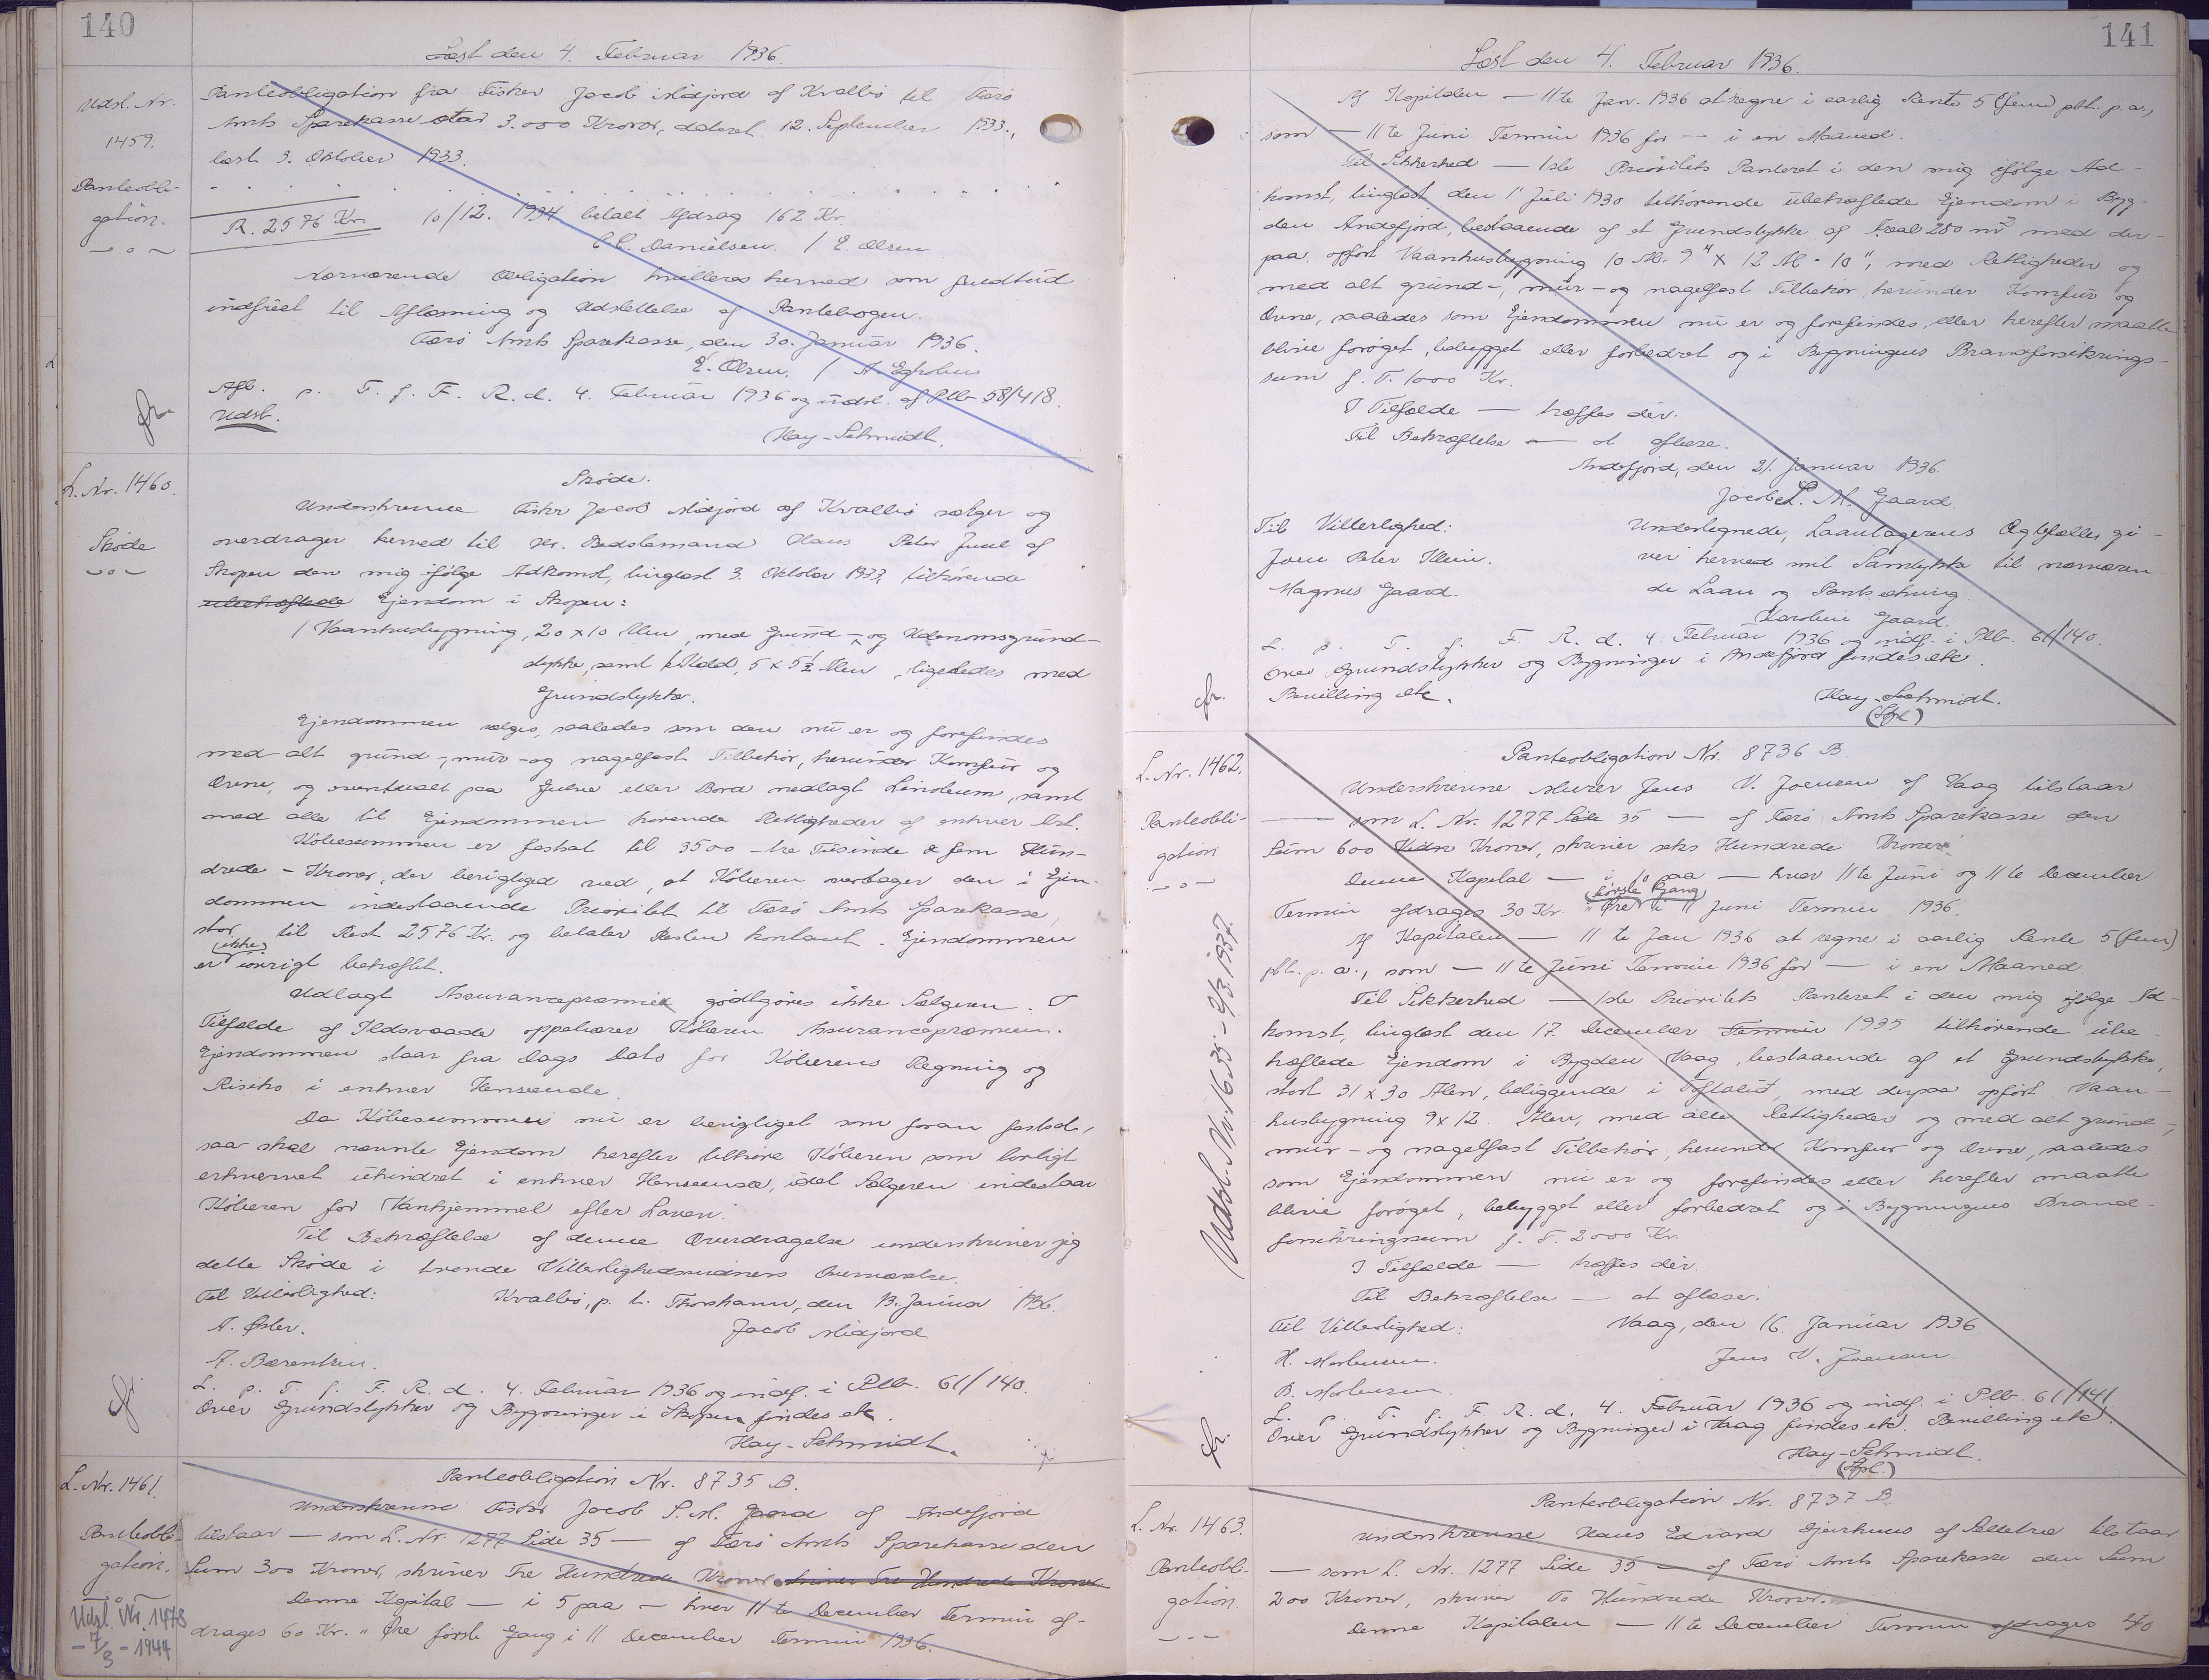 140
Læst den 4. Februar 1936.
Udsl. Nr.
1459.
Panteobli-
gation.
Panteobligation fra Fisker Jacob Midjord af Kvalbö til Færö
Amts Sparekasse stor 3.000 Kroner, dateret 12. September 1933.,
læst 3. Oktober 1933.
R. 2576 Kr. 10/12. 1934 betalt Afdrag 162 Kr.
Danielsen. / E. Olsen
Nærværende Obligation kvitteres herved som fuldtud
indfriet til Aflæsning og Udslettelse af Pantebogen.
Færö Amts Sparekasse, den 30. Januar 1936.
E. Olsen. / A. Egholm
Afl. p. T. f. F. R. d. 4. Februar 1936 og udsl. af Plb 58/418.
Udsl.
Hay-Schmidt.
L. Nr. 1460.
Sköde
Sköde.
Underskrevne Fisker Jacob Midjord af Kvalbö sælger og
overdrager herved til Hr. Bedstemand Hans Peter Juul af
Skopen den mig ifölge Adkomst, tinglæst 3. Oktober 1933, tilhörende
ubehæftede Ejendom i Skopen:
1 Vaanhusbygning, 20 x 10 Alen, med Grund- og Udenomsgrund-
stykke, samt 1 Udd, 5 x 5½ Alen, ligeledes med
Grundstykke.
Ejendommen sælges, saaledes som den nu er og forefindes
med alt grund-, mur- og nagelfast Tilbehör, herunder Komfur og
Ovne, og eventuelt paa Gulve eller Bord nedlagt Linoleum, samt
med alle til Ejendommen hørende Rettigheder af enhver Art.
Köbesummen er fastsat til 3500 - tre Tusinde & fem Hun-
drede - Kroner, der berigtiges ved, at Köberen overtager den i Ejen-
dommen indestaaende Prioritet til Færö Amts Sparekasse,
stor til Rest 2576 Kr. og betaler Resten kontant. Ejendommen
er (ikke) iövrigt behæftet.
Udlagt Assurancepræmie godtgöres ikke Sælgeren. I
Tilfælde af Ildsvaade oppebærer Köberen Assurancepræmien.
Ejendommen staar fra Dags Dato for Köberens Regning og
Risiko i enhver Henseende.
Da Köbesummen nu er berigtiget som foran fastsat,
saa skal nævnte Ejendom herefter tilhöre Köberen som lovligt
erhvervet uhindret i enhver Henseende, idet Sælgeren indestaar
Köberen for Vanhjemmel efter Loven.
Til Bekræftelse af denne Overdragelse underskriver jeg
dette Sköde i tvende Vitterlighedsvidners Overværelse.
Til Vitterlighed: Kvalbö, p. t. Thorshavn, den 13. Januar 1936.
A. Öster. Jacob Midjord
A. Bærentsen.
L. p. T. f. F. R. d. 4. Februar 1936 og indf. i Plb. 61/140.
Over Grundstykker og Bygninger i Skopen findes etc.
Hay-Schmidt.
L. Nr. 1461.
Panteobli-
gation.
Udsl. Nr. 1478
- 7/3 - 1944
Panteobligation Nr. 8735 B.
Underskrevne Fisker Jacob S. M. Gaard af Andefjord
tilstaar — som L. Nr. 1277 Side 35 — af Færö Amts Sparekasse den
Sum 300 Kroner, skriver Tre Hundrede Kroner skriver Tre Hundrede Kroner.
Denne Kapital — i 5 paa — hver 11te December Termin af-
drages 60 Kr. " Öre förste Gang i 11 December Termin 1936.
141
Læst den 4. Februar 1936.
Af Kapitalen — 11te Jan. 1936 at regne i aarlig Rente 5 (fem) pct. p. a.,
som — 11te Juni Termin 1936 for — i en Maaned.
Til Sikkerhed — 1ste Prioritets Panteret i den mig ifölge Ad-
komst, tinglæst den 1' Juli 1930 tilhörende ubehæftede Ejendom i Byg-
den Andefjord, bestaaende af et Grundstykke af Areal 280 m² med der-
paa opfört Vaanhusbygning 10 Al. 9" x 12 Al. 10", med Rettigheder og
med alt grund-, mur- og nagelfast Tilbehör, herunder Komfur og
Ovne, saaledes som Ejendommen nu er og forefindes, eller herefter maatte
blive foröget, bebygget eller forbedret og i Bygningens Brandforsikrings-
sum f. T. 1000 Kr.
I Tilfælde — træffes dér.
Til Bekræftelse — at aflæse.
Andefjord, den 21. Januar 1936.
Jacob S. M. Gaard
Til Vitterlighed: Undertegnede, Laantagerens Ægtefælle, gi-
Joen Peter Klein. ver herved mit Samtykke til nærværen-
Magnus Gaard. de Laan og Pantsætning.
Karoline Gaard.
L. p. T. f. F. R. d. 4. Februar 1936 og indf. i Plb. 61/140.
Over Grundstykker og Bygninger i Andefjord findes etc.
Bevilling etc. Hay-Schmidt.
L. Nr. 1462.
Panteobli-
gation
Udsl. Nr. 1635 - 9/3. 1937.
Panteobligation Nr. 8736 B.
Underskrevne Murer Jens V. Joensen af Vaag tilstaar
— som L. Nr. 1277 Side 35 — af Færö Amts Sparekasse den
Sum 600 Kroner, skriver seks Hundrede Kroner.
Denne Kapital — i 10 paa — hver 11te Juni og 11te December
Termin afdrages 30 Kr. " Öre (förste Gang) i 11 Juni Termin 1936.
Af Kapitalen — 11te Jan 1936 at regne i aarlig Rente 5 (fem)
pct. p. a., som — 11te Juni Termin 1936 for — i en Maaned.
Til Sikkerhed — 1ste Prioritets Panteret i den mig ifölge Ad-
komst, tinglæst den 17. December Termin 1935 tilhörende ube-
hæftede Ejendom i Bygden Vaag, bestaaende af et Grundstykke,
stort 31 x 30 Alen, beliggende i med derpaa opfört Vaan-
husbygning 9 x 12 Alen, med alle Rettigheder og med alt grund-,
mur- og nagelfast Tilbehör, herunder Komfur og Ovne, saaledes
som Ejendommen nu er og forefindes eller herefter maatte
blive foröget, bebygget eller forbedret og i Bygningens Brand-
forsikringssum f. T. 2000 Kr.
I Tilfælde — træffes dér.
Til Bekræftelse — at aflæse.
Til Vitterlighed: Vaag, den 16. Januar 1936
H. Mortensen. Jens V. Joensen.
B. Mortensen.
L. p. T. f. F. R. d. 4. Februar 1936 og indf. i Plb. 61/141.
Over Grundstykker og Bygninger i Vaag findes etc. Bevilling etc.
Hay-Schmidt.
L. Nr. 1463.
Panteobli-
gation.
Panteobligation Nr. 8737 B.
Underskrevne Hans Edvard Gjerhuus af Selletræ tilstaar
— som L. Nr. 1277 Side 35 — af Færö Amts Sparekasse den Sum
200 Kroner, skriver To Hundrede Kroner.
Denne Kapitalen — 11te December Termin afdrages 40